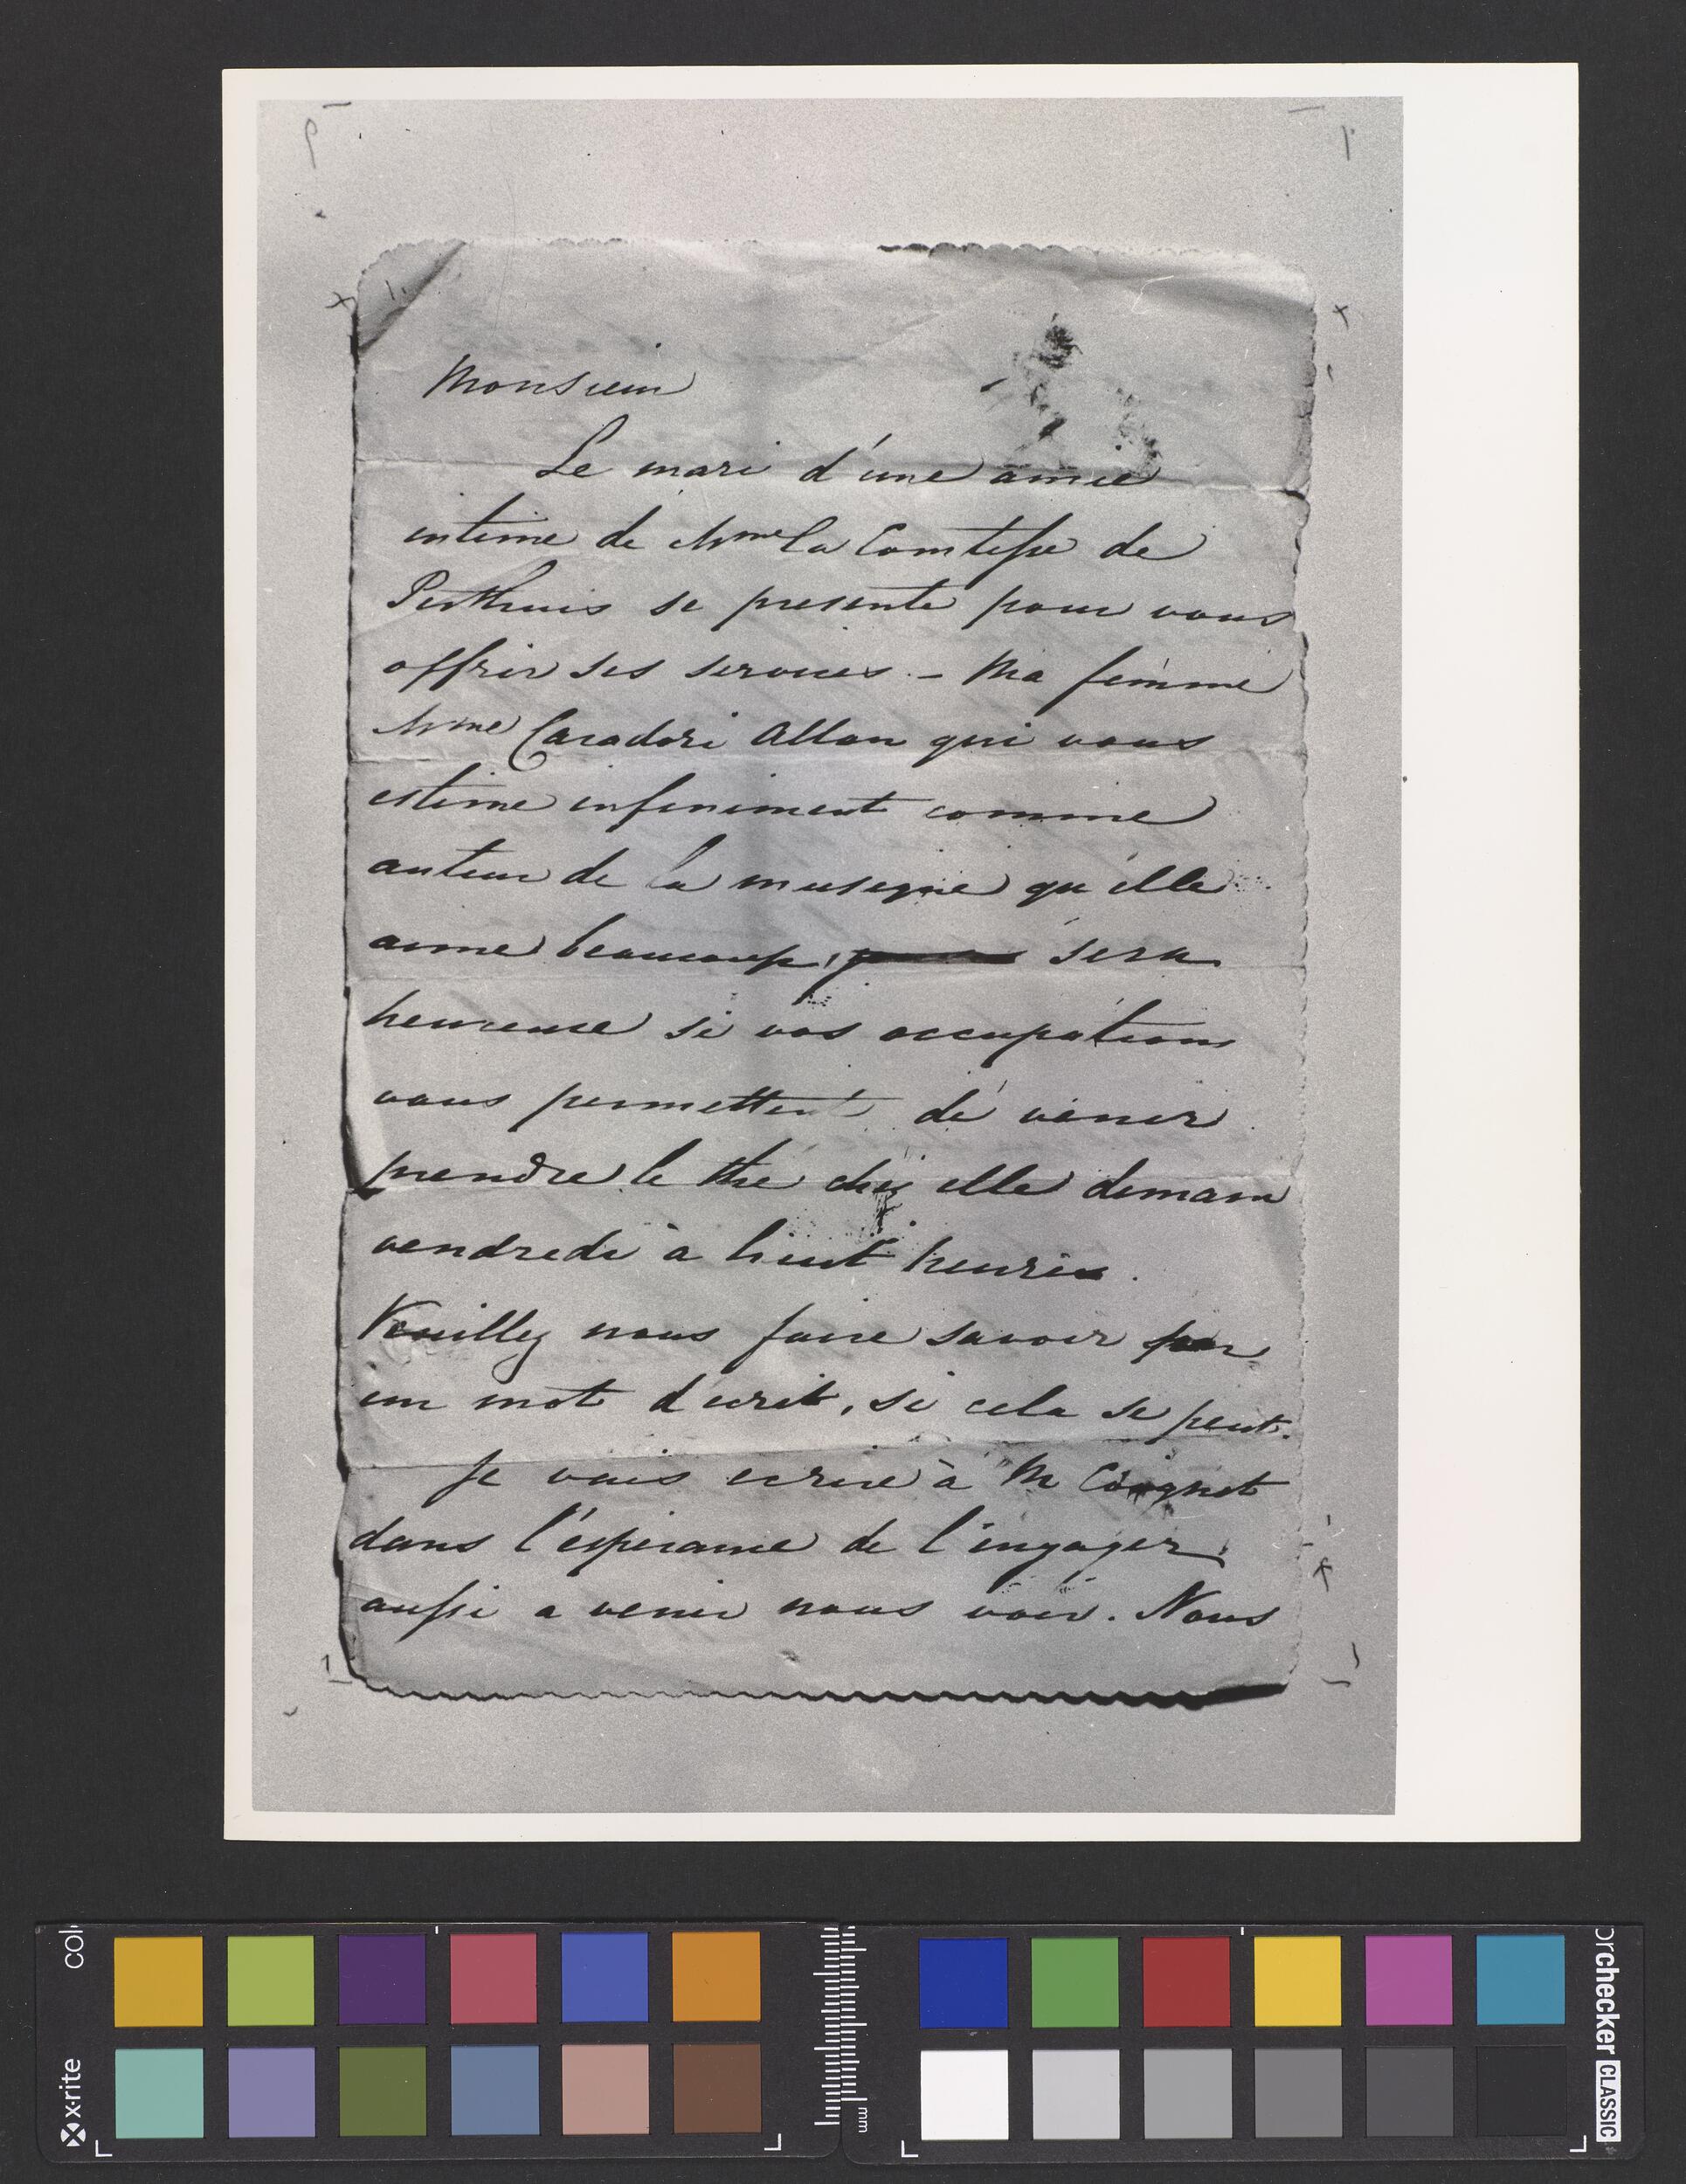 Monsieur
Le mari d'une amie
intime de Mme la Comtesse de
Perthuis se presente pour vous
offrir ses services. – Ma femme
Mme Caradori Allan qui vous
estime infiniment comme
auteur de la musique qu'elle
aime beaucoup, sera
heureuse si vos occupations
vous permettent de venir
prendre le thé chez elle demain
vendredi à huit heures.
Veuillez nous faire savoir par
un mot d'ecrit, si cela se peut.
Je vais ecrire à M Coignet
dans l'esperance de l'engager
aussi a venir nous voir. Nous
x-rite
col
mm
orchecker CLASSIC